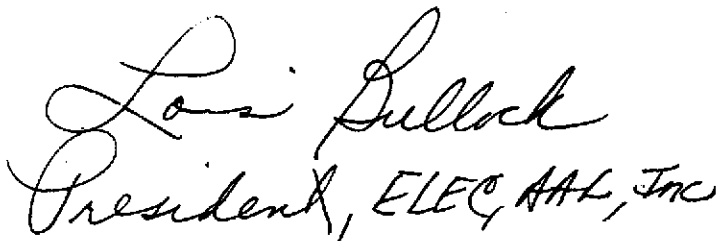 Lois Bullock
President, ELEC, AAL, Inc